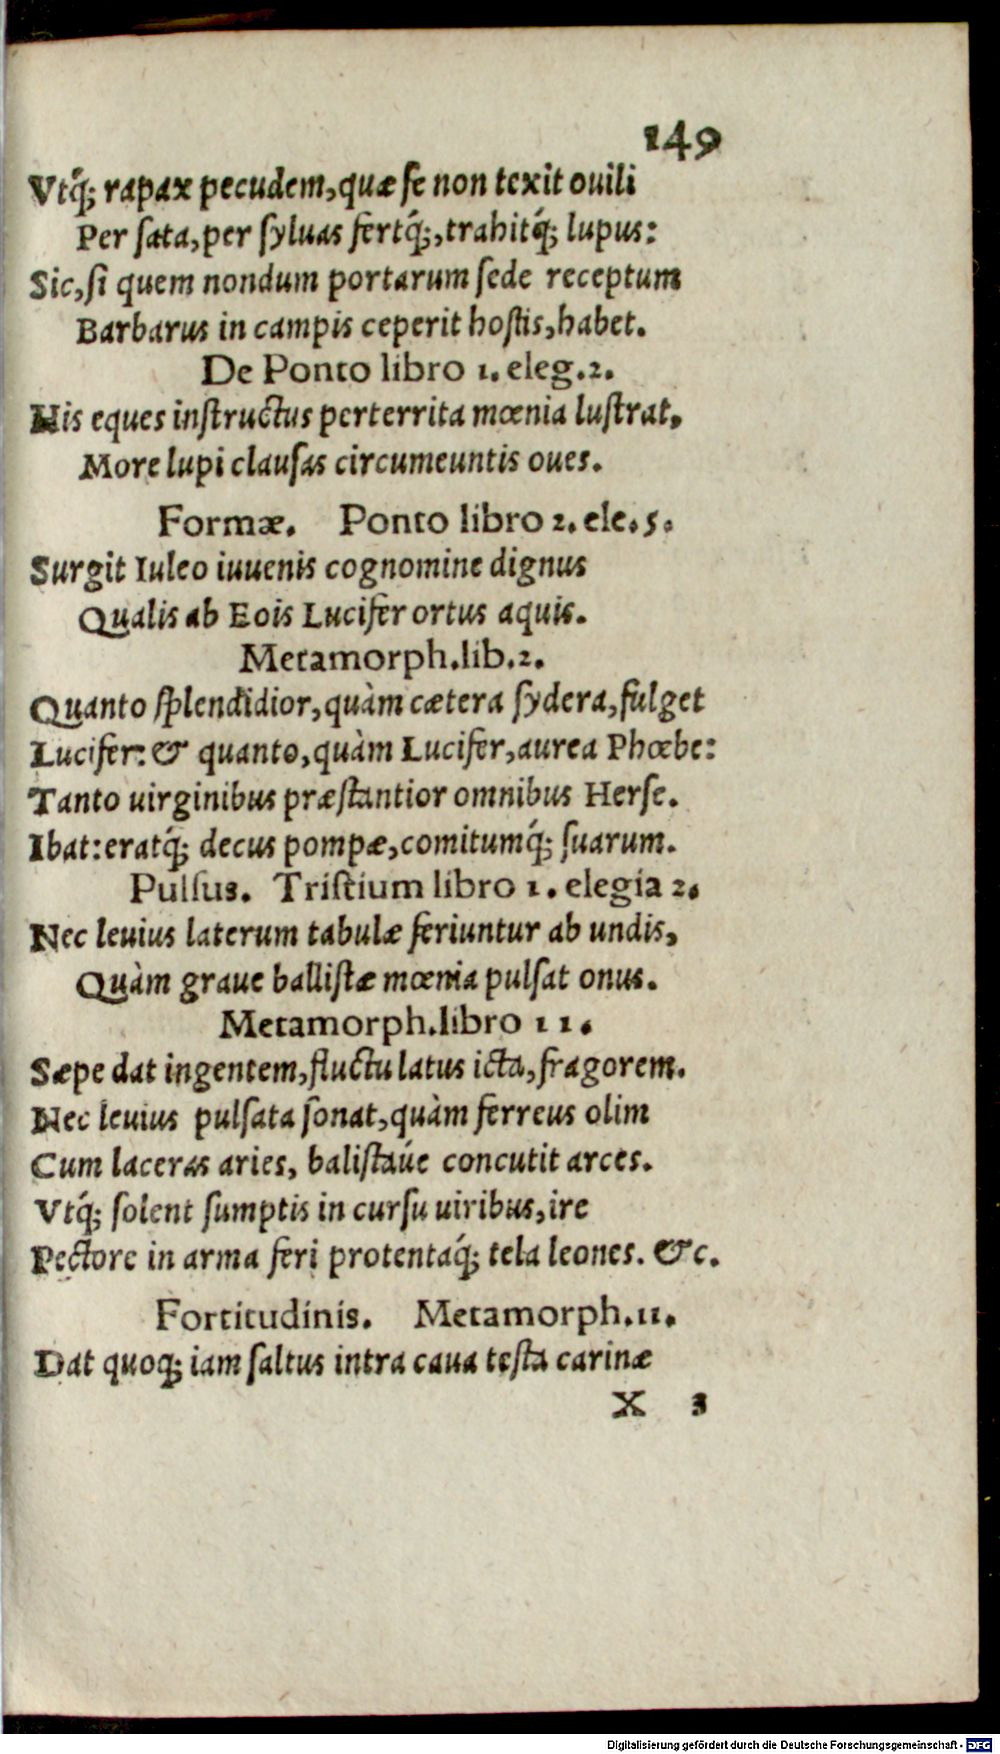 149
Vtq́; rapax pecudem, quæ se non texit ouili
Per sata, per syluas fertq́;, trahitq́; lupus:
Sic, si quem nondum portarum sede receptum
Barbarus in campis ceperit hostis, habet.
De Ponto libro 1. eleg. 2.
His eques instructus perterrita mœnia lustrat,
More lupi clausas circumeuntis oues.
Formæ. Ponto libro 2. ele. 5.
Surgit Iuleo iuuenis cognomine dignus
Qualis ab Eois Lucifer ortus aquis.
Metamorph. lib. 2.
Quanto splendidior, quàm cætera sydera, fulget
Lucifer: & quanto, quàm Lucifer, aurea Phœbe:
Tanto uirginibus præstantior omnibus Herse.
Ibat: eratq́; decus pompæ, comitumq́; suarum.
Pulsus. Tristium libro 1. elegia 2.
Nec leuius laterum tabulæ feriuntur ab undis,
Quàm graue ballistæ mœnia pulsat onus.
Metamorph. libro 11.
Sæpe dat ingentem, fluctu latus icta, fragorem.
Nec leuius pulsata sonat, quàm ferreus olim
Cum laceras aries, balistaúe concutit arces.
Vtq́; solent sumptis in cursu uiribus, ire
Pectore in arma feri protentaq́; tela leones. &c.
Fortitudinis. Metamorph. 11.
Dat quoq; iam saltus intra caua testa carinæ
X 3
Digitalisierung gefördert durch die Deutsche Forschungsgemeinschaft - DFG